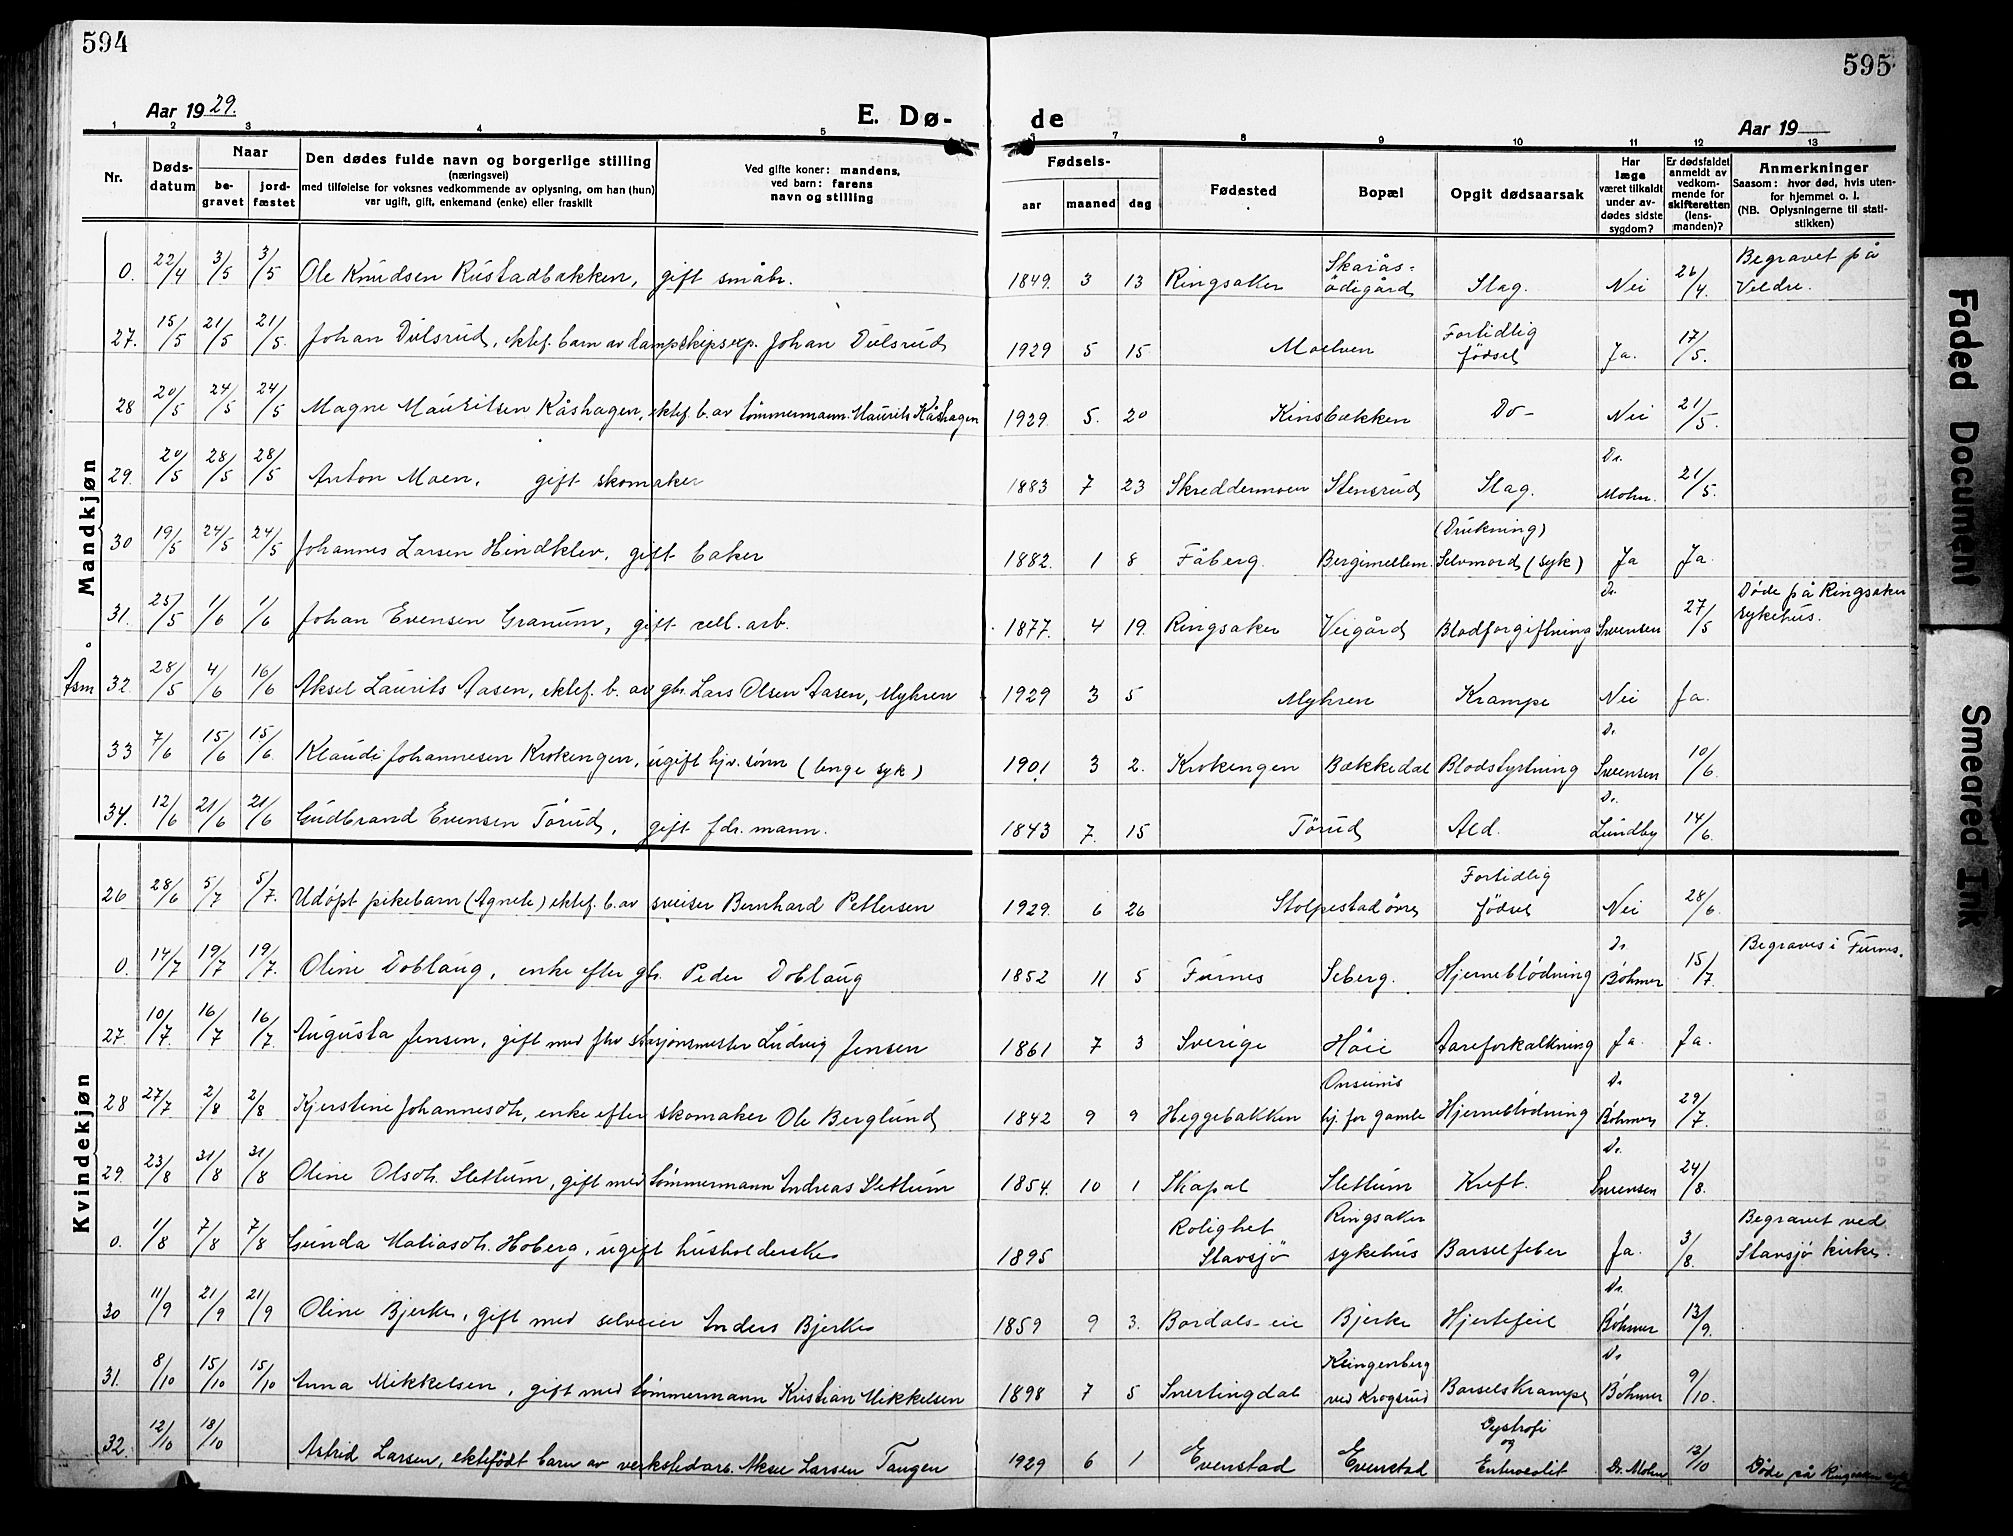 594
595
Aar 1929.
E. Dø-
de
Aar 19
1 2 3 4 5 6 7 8 9 10 11 12 13
Nr.
Døds-
datum
Naar
be-
gravet
jord-
fæstet
Den dødes fulde navn og borgerlige stilling
(næringsvei)
med tilføielse for voksnes vedkommende av oplysning, om han (hun)
var ugift, gift, enkemand (enke) eller fraskilt
Ved gifte koner: mandens,
ved barn: farens
navn og stilling
Fødsels-
aar maaned dag
Fødested
Bopæl
Opgit dødsaarsak
Har
læge
været tilkaldt
under av-
dødes sidste
sygdom?
Er dødsfaldet
anmeldt av
vedkom-
mende for
skifteretten
(lens-
manden)?
Anmerkninger
Saasom: hvor død, hvis uten-
for hjemmet o. l.
(NB. Oplysningerne til stati-
stikken)
Mandkjøn
0. 22/4 3/5 3/5 Ole Knudsen Rustadbakken, gift småbr. 1849. 3 13 Ringsaker Skarås-ødegård Slag. Nei 26/4. Begravet på Veldre.
27. 15/5 21/5 21/5. Johan Dulsrud, ektef. barn av dampskipsexp. Johan Dulsrud 1929 5 15 Moelven Fortidlig fødsel Ja. 17/5.
28 20/5 24/5 24/5 Magne Mauritsen Kåshagen, ektef. b. av tømmermann Maurits Kåshagen 1929. 5. 20 Kinsbakken Do- Nei 21/5.
29. 20/5 28/5 28/5 Anton Moen, gift skomaker 1883 7 23 Skreddermoen Stensrud Slag. Dr. Mohn. 21/5.
30 19/5 24/5 24/5 Johannes Larsen Hindklev, gift baker 1882. 1 8 Fåberg. Bergimellem. (Drukning) Selvmord (syk) Ja Ja.
31. 25/5 1/6 1/6 Johan Evensen Granum, gift cell. arb. 1877. 4 19. Ringsaker Veigård Blodforgiftning Dr. Svensen 27/5 Døde på Ringsaker sykehus.
Åsm 32. 28/5 4/6 16/6 Aksel Laurits Aasen, ektef. b. av gbr. Lars Olsen Aasen, Myhren 1929 3 5 Myhren Krampe Nei Ja.
33 7/6 15/6 15/6. Klaudi Johannesen Krokengen, ugift hjv. sønn (lenge syk) 1901 3 2. Krokengen Bækkedal Blodstyrtning Dr. Svensen 10/6.
34. 12/6 21/6 21/6 Gudbrand Evensen Tørud, gift fdr. mann. 1843 7. 15 Tørud Ald. Dr. Lundby 14/6.
Kvindekjøn
26 28/6 5/7 5/7. Udøpt pikebarn (Agnete) ektef. b. av sveiser Bernhard Pettersen 1929. 6 26 Stolpestad øvre Fortidlig fødsel Nei 28/6.
0. 14/7 19/7 19/7. Oline Doblaug, enke efter gbr. Peder Doblaug 1852 11 5 Furnes Seberg. Hjerneblødning Dr Bøhmer 15/7. Begraves i Furnes.
27. 10/7 16/7 16/7 Augusta Jensen, gift med fhv stasjonsmester Ludvig Jensen 1861 7 3 Sverige Høie Aareforkalkning Ja. Ja.
28 27/7 2/8 2/8 Kjerstine Johannesdtr, enke efter skomaker Ole Berglund 1842 9 9 Heggebakken Onsums hj. for gamle Hjerneblødning Dr Bøhmer 29/7.
29. 23/8 31/8 31/8 Oline Olsdtr. Slettum, gift med tømmermann Andreas Slettum 1854. 10 1 Skapal Slettum Kreft. Dr. Svensen 24/8.
0. 1/8 7/8 7/8 Gunda Matiasdtr. Hoberg, ugift husholderske 1895 Rolighet Stavsjø Ringsaker sykehus Barselfeber Ja. 3/8. Begravet ved Stavsjø kirke.
30 11/9 21/9 21/9 Oline Bjerke, gift med selveier Anders Bjerke 1859 9 3. Bordals-eie Bjerke Hjertefeil Dr. Bøhmer 13/9.
31. 8/10 15/10 15/10 Anna Mikkelsen, gift med tømmermann Kristian Mikkelsen 1898 7 5 Snertingdal Klingenberg ved Krogsrud Barselskrampe Dr Bøhmer 9/10.
32. 12/10 18/10 Astrid Larsen, ektefødt barn av verkstedarb. Aksel Larsen Tangen 1929 6 1 Evenstad Evenstad Dystrofi og Enterocolit Dr. Mohn 13/10 Døde på Ringsaker
Faded Document
Smeared Ink